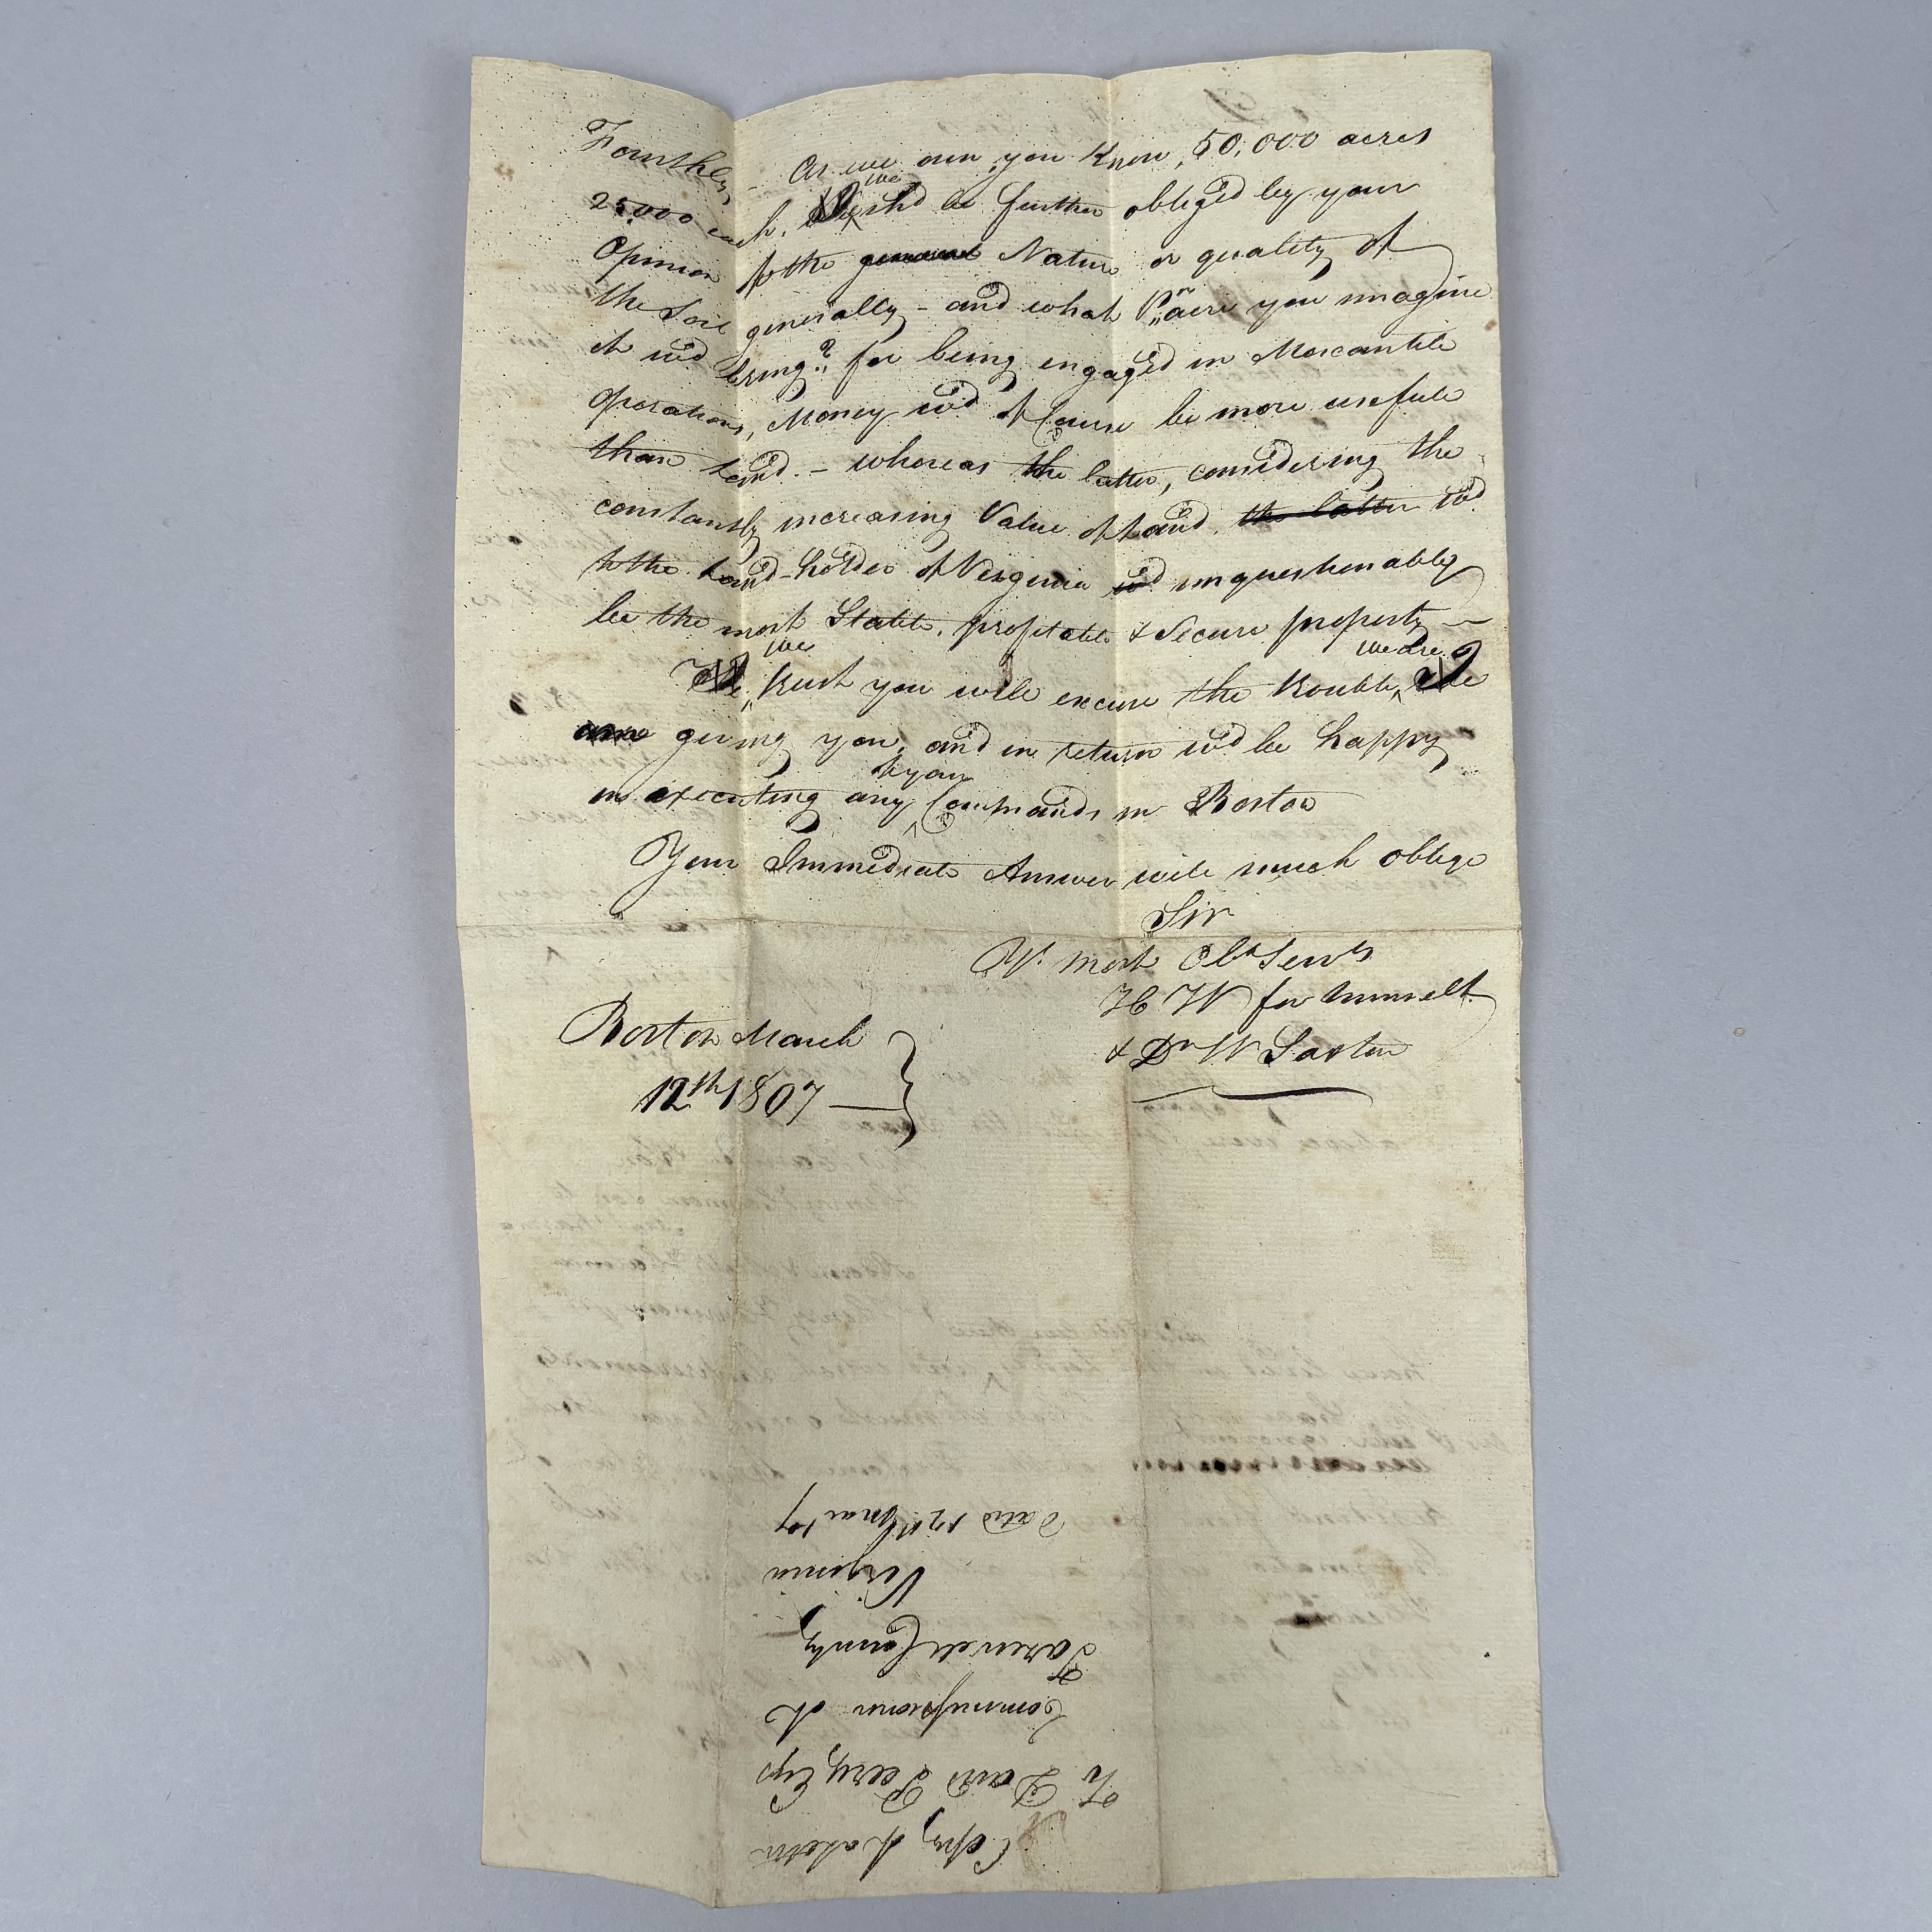 Fourthly – As we own, you Know, 50,000 acres
25,000 each, we shd be further obliged by your
Opinion of the general Nature or quality of
the Soil generally – and what Pr acre you imagine
it wd bring? for being engaged in Mercantile
operations, Money wd of Course be more usefull
than Land. – whereas the latter, considering the
constantly increasing Value of Land, the latter wd
to the Land-holder of Virginia wd unquestionably
be the most Stable, profitable & Secure property —
We trust you will excuse the trouble, we are
are giving you, and in return wd be happy
in executing any of your Commands in Boston
Your Immediate Answer will much oblige
Sir
Yr most Obt Servts
H W for himself
& Dr W Paxton
Boston March
12th 1807 —
Copy of a letter
To Davd Peery Esqr
Commissioner of
Tazewell County
Virginia
Date 12th Mar '07